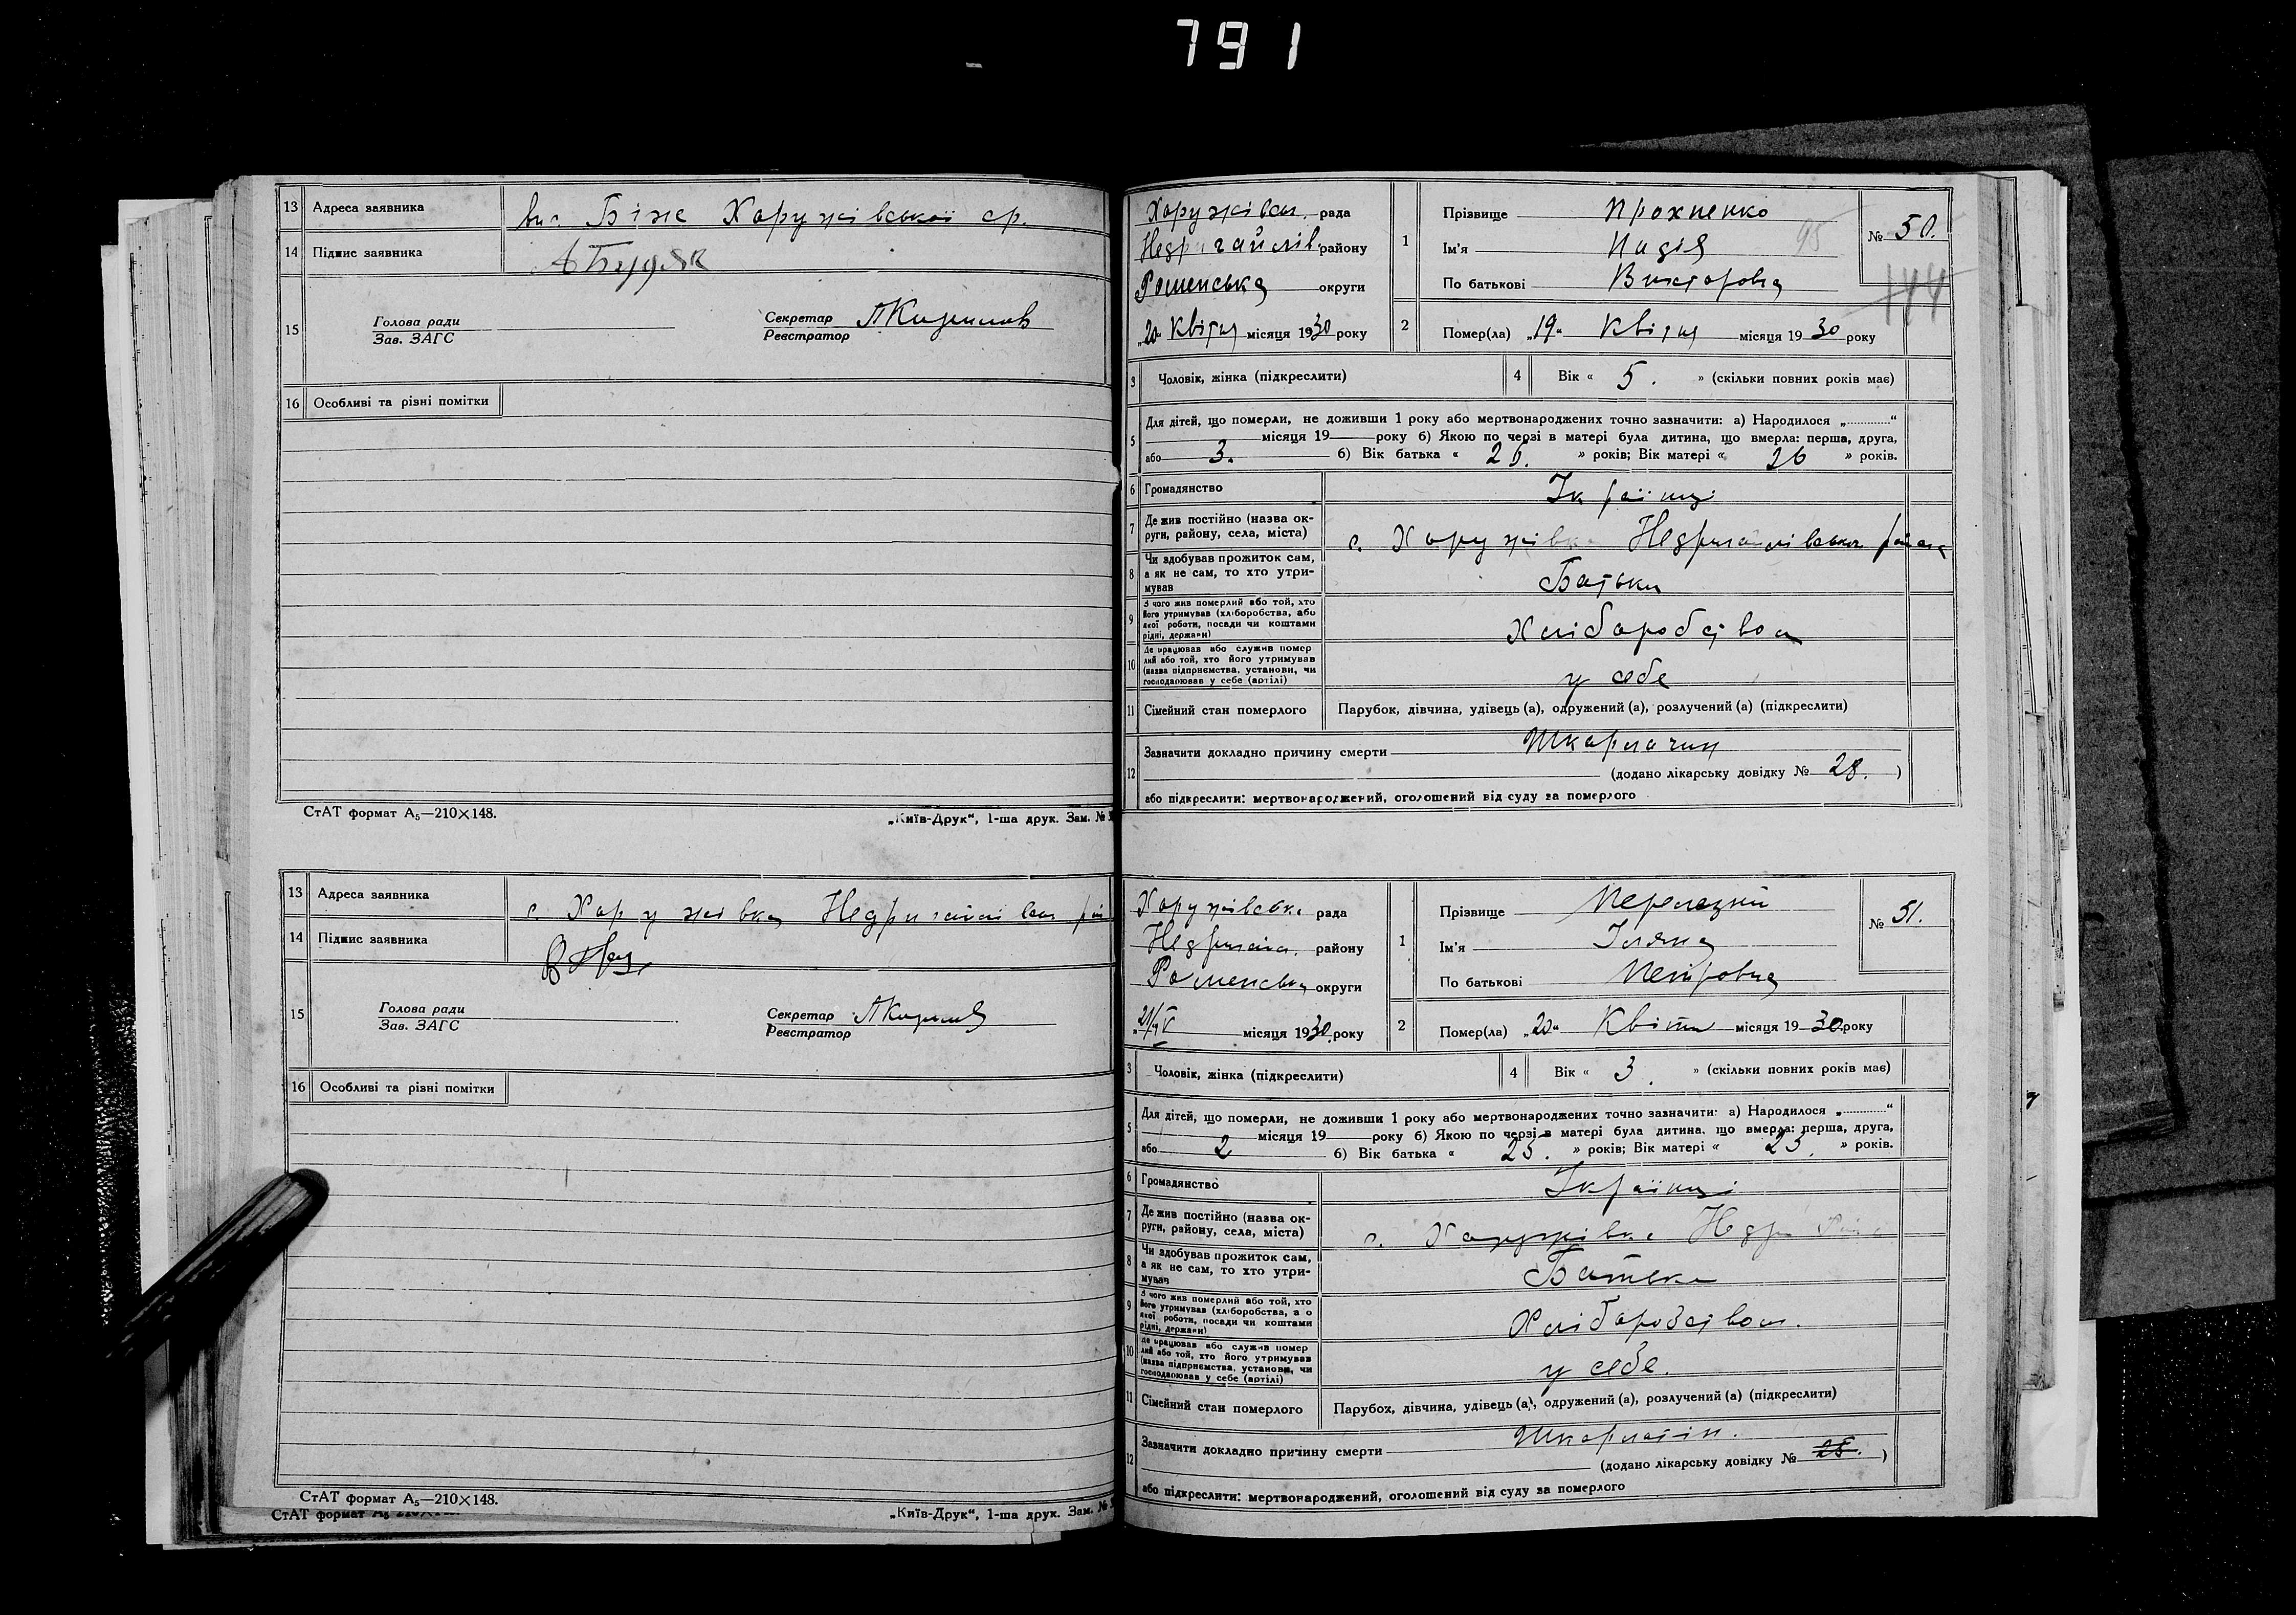 791
13 Адреса заявника вис. Біже Хоружівської ср.
14 Підпис заявника АБудяк
15 Голова ради Секретар
Зав. ЗАГС Реєстратор
16 Особливі та різні помітки
СтАТ формат А₅—210×148. „Київ-Друк“, 1-ша друк. Зам. №
13 Адреса заявника с. Хоружівка
14 Підпис заявника
15 Голова ради Секретар
Зав. ЗАГС Реєстратор
16 Особливі та різні помітки
СтАТ формат А₅—210×148.
СтАТ формат „Київ-Друк“, 1-ша друк. Зам. №
Хоружівсь. рада
Недригайлів. району
Роменська округи
„20“ Квітня місяця 1930 року
1 Прізвище Прохненко
Ім'я Надія
По батькові Викторовна
№ 50.
95
144
2 Помер(ла) „19“ Квітня місяця 1930 року
3 Чоловік, жінка (підкреслити) 4 Вік « 5. » (скільки повних років має)
5 Для дітей, що померли, не доживши 1 року або мертвонароджених точно зазначити: а) Народилося „............“
місяця 19 року б) Якою по черзі в матері була дитина, що вмерла: перша, друга,
або 3. б) Вік батька « » років; Вік матері « 26 » років.
6 Громадянство Українці
7 Де жив постійно (назва округи, району, села, міста) с. Хоружівка Недригайлівського
8 Чи здобував прожиток сам, а як не сам, то хто утримував Батьки
9 З чого жив померлий або той, хто його утримував (хліборобства, або якої роботи, посади чи коштами рідні, держави) Хліборобством
10 Де працював або служив помер лий або той, хто його утримував (назва підприємства, установи, чи господарював у себе (артілі) у себе
11 Сімейний стан померлого Парубок, дівчина, удівець (а), одружений (а), розлучений (а) (підкреслити)
12 Зазначити докладно причину смерти Шкарлатин
(додано лікарську довідку № 28. )
або підкреслити: мертвонароджений, оголошений від суду за померлого
Хоружівська рада
району
Роменська округи
„21/IV місяця 1930 року
1 Прізвище
Ім'я
По батькові Петровна
№ 51.
2 Помер(ла) „20“ Квітня місяця 1930 року
3 Чоловік, жінка (підкреслити) 4 Вік « 3. » (скільки повних років має)
5 Для дітей, що померли, не доживши 1 року або мертвонароджених точно зазначити: а) Народилося „............“
місяця 19 року б) Якою по черзі в матері була дитина, що вмерла: перша, друга,
або 2 б) Вік батька « 25. » років; Вік матері « 23. » років.
6 Громадянство Українці
7 Де жив постійно (назва округи, району, села, міста) с. Хоружівка
8 Чи здобував прожиток сам, а як не сам, то хто утримував Батьки
9 З чого жив померлий або той, хто його утримував (хліборобства, а о якої роботи, посади чи коштами рідні, держави) Хліборобством.
10 Де працював або служив помер лий або той, хто його утримував (назва підприємства, установи, чи господарював у себе (артілі) у себе.
11 Сімейний стан померлого Парубок, дівчина, удівець (а), одружений (а), розлучений (а) (підкреслити)
12 Зазначити докладно причину смерти Шкарлатін.
(додано лікарську довідку № )
або підкреслити: мертвонароджений, оголошений від суду за померлого